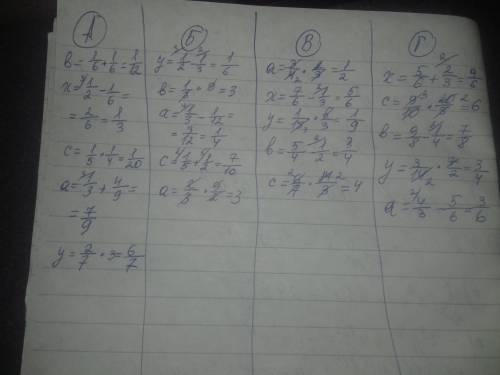 А
в=1/6·1/6=1/12
x=1/2-1/6=
=2/6=1/3
c=1/5·1/4=1/20
a=1/3+4/9=
=7/9
y=2/7·3=6/7
Б
y=1/2-1/3=1/6
в=1/3·9=3
a=1/3-1/12=
=3/12=1/4
c=1/5+1/2=7/10
a=2/3·9/2=3
В
a=3/4·2/3=1/2
x=7/6-1/3=5/6
y=1/15·5/3=1/9
в=5/4-1/2=3/4
c=6/7·14/3=4
Г
x=5/6+2/3=9/6
c=9/10·20/3=6
в=9/8-1/4=7/8
y=3/14·7/2=3/4
a=4/3-5/6=3/6